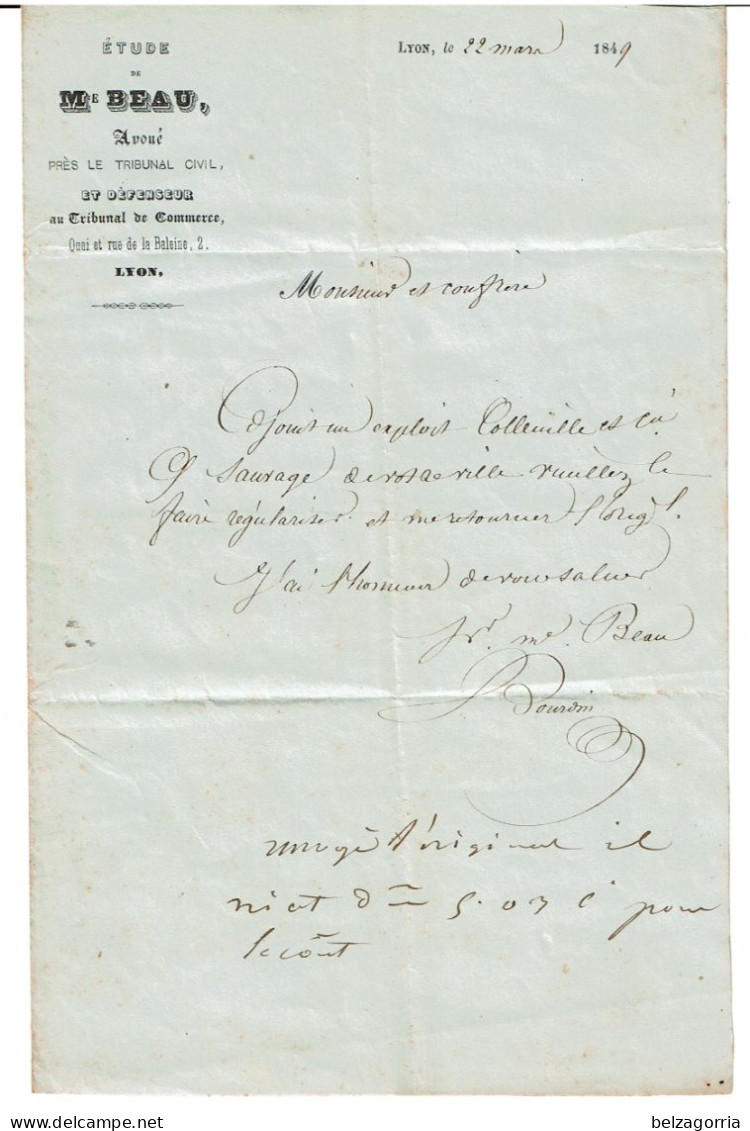 ÉTUDE
DE
ME BEAU,
Avoué
PRÈS LE TRIBUNAL CIVIL,
ET DÉFENSEUR
au Tribunal de Commerce,
Quai et rue de la Baleine, 2.
LYON.
LYON, le 22 mars 1849
Monsieur et confrère
Cijoint un exploit Colleuille et Cie
C/ Sauvage de votre ville veuillez le
faire régulariser et me retourner l'origl.
J'ai l'honneur de vous saluer
Pr. Me. Beau
Bourdin
l'original il
m'est d 5.03 c pour
le coût
belzagorria